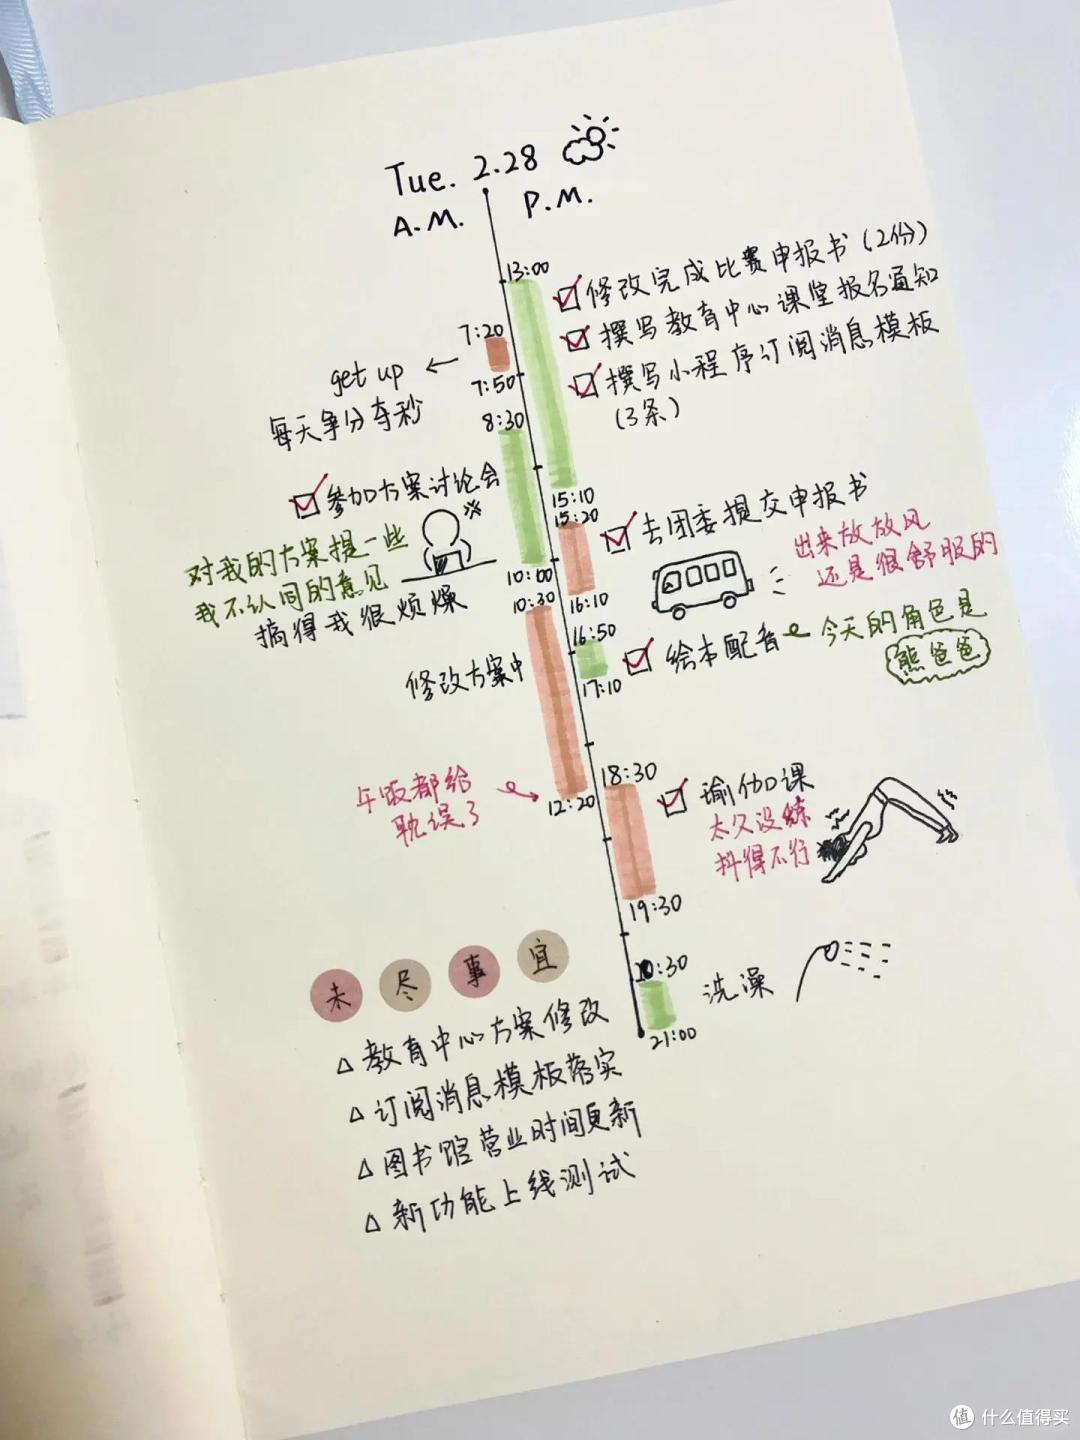 Tue. 2.28
A.M.
P.M.
7:20
get up
7:50
每天争分夺秒
8:30
参加方案讨论会
对我的方案提一些
我不认同的意见
搞得我很烦燥
10:00
10:30
修改方案中
午饭都给
耽误了
12:20
13:00
修改完成比赛申报书(2份)
撰写教育中心课堂报名通知
撰写小程序订阅消息模板
(3条)
15:10
15:20
去团委提交申报书
出来放放风
还是很舒服的
16:10
16:50
绘本配音
今天的角色是
熊爸爸
17:10
18:30
瑜伽课
太久没练
抖得不行
19:30
20:30
洗澡
21:00
未尽事宜
△教育中心方案修改
△订阅消息模板落实
△图书馆营业时间更新
△新功能上线测试
值 什么值得买